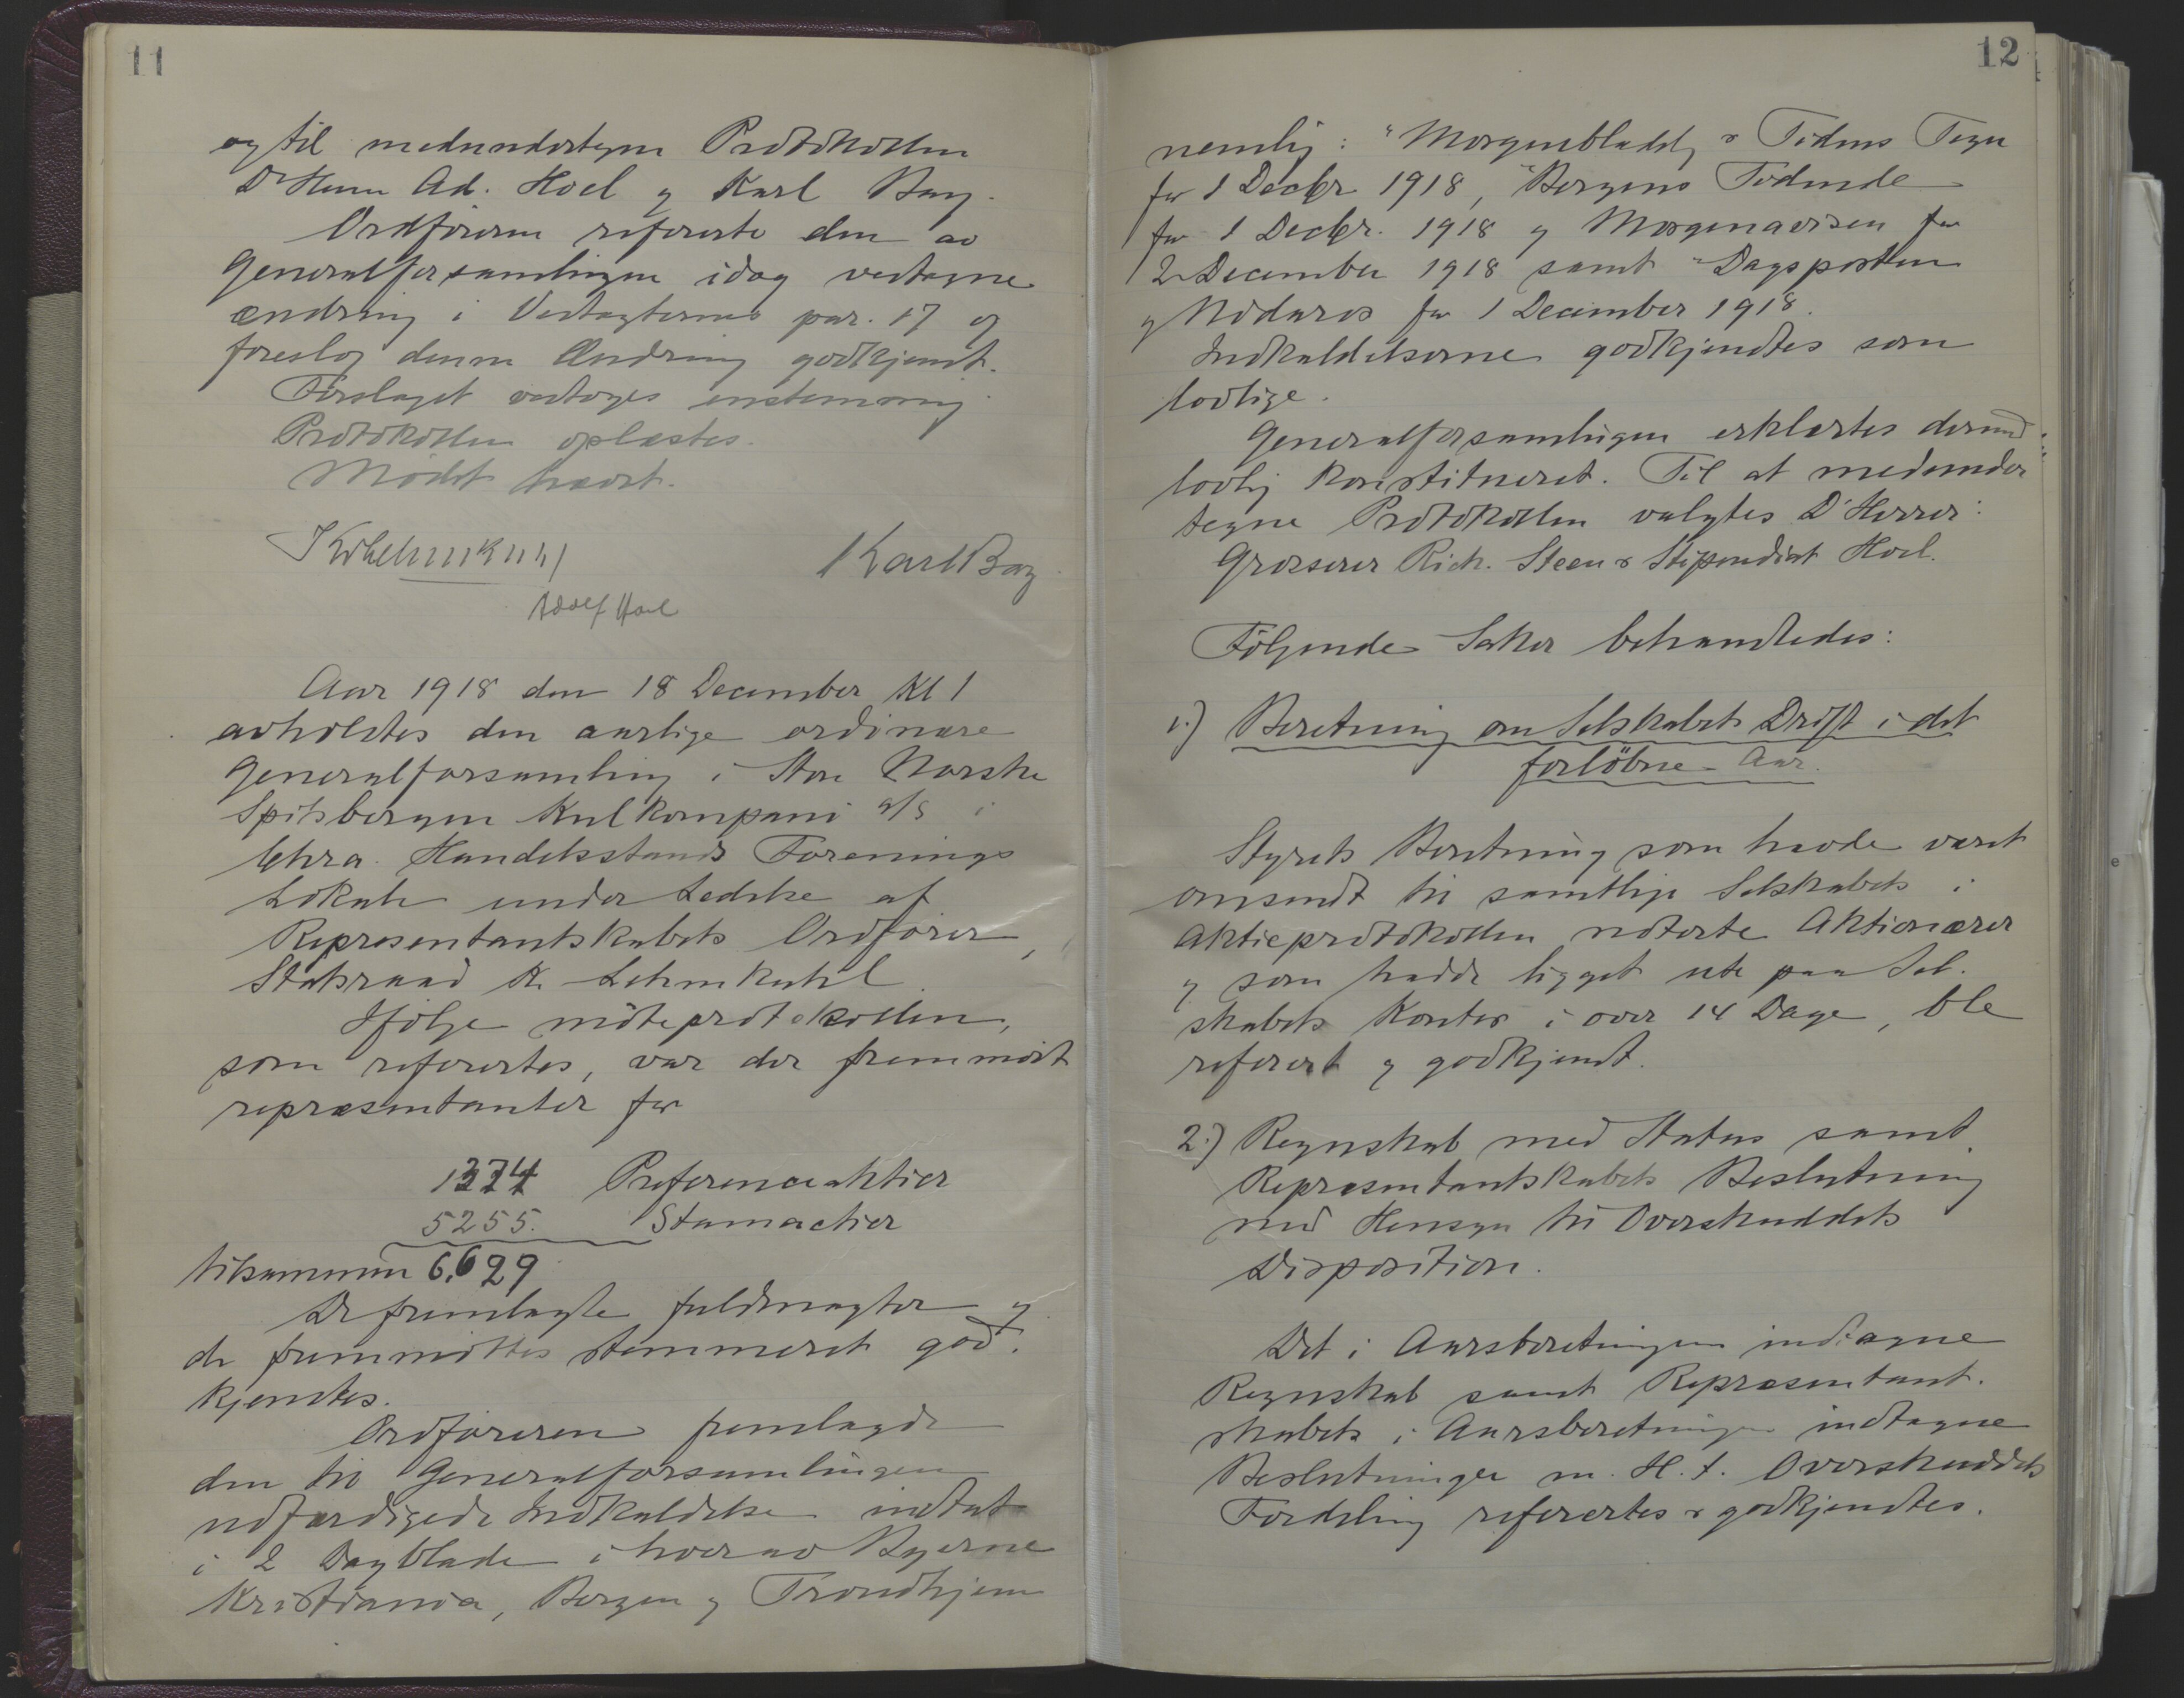 11
og til medundertegne Protokollen
D'Herrer Ad. Hoel og Karl Bay.
Ordföreren refererte den av
Generalforsamlingen idag vedtagne
ændring i Vedtægternes par. 17 og
foreslog denne Ændring godkjendt.
Forslaget vedtoges enstemmig.
Protokollen oplæstes.
Mödet hævet.
KLehmkuhl
Karl Bay
Adolf Hoel
Aar 1918 den 18 December Kl 1
avholdtes den aarlige ordinære
Generalforsamling i Store Norske
Spitsbergen Kulkompani a/s i
Chra. Handelsstands Forenings
Lokale under Ledelse af
Repræsentantskabets Ordförer,
Statsraad K. Lehmkuhl.
Ifölge möteprotokollen,
som referertes, var der fremmöt
repræsentanter for
1374 Preferenceaktier
5255. Stamactier
tilsammen 6,629
De fremlagte fuldmagter og
de fremmöttes stemmeret god-
kjendtes.
Ordföreren fremlagde
den til Generalforsamlingen
udfærdigede Indkaldelse indtat
i 2 Dagblade i hver av Byerne
Kristiania, Bergen og Trondhjem
12
nemlig: "Morgenbladet, & Tidens Tegn
for 1 Decbr 1918, "Bergens Tidende
for 1 Decbr. 1918 og Morgenavisen for
2 December 1918 samt "Dagsposten
og Nidaros for 1 December 1918.
Indkaldelserne godkjendtes som
lovlige.
Generalforsamlingen erklærtes dermed
lovlig konstitueret. Til at medunder
tegne Protokollen valgtes D'Herrer:
Grosserer Rich. Steen & Stipendiat Hoel.
Fölgende Saker behandledes:
1.) Beretning om Selskabets Drift i det
forlöbne Aar.
Styrets Beretning som havde været
omsendt til samtlige Selskabets i
Aktieprotokollen noterte Aktionærer
og som hadde ligget ute paa Sel-
skabets Kontor i over 14 Dage, ble
referert og godkjendt.
2.) Regnskab med Status samt
Repræsentantskabets Beslutning
med Hensyn til Overskuddets
Disposition.
Det i Aarsberetningen indtagne
Regnskab samt Repræsentant-
skabets i Aarsberetningen indtagne
Beslutninger m. H. t. Overskuddets
Fordeling referertes & godkjendtes.